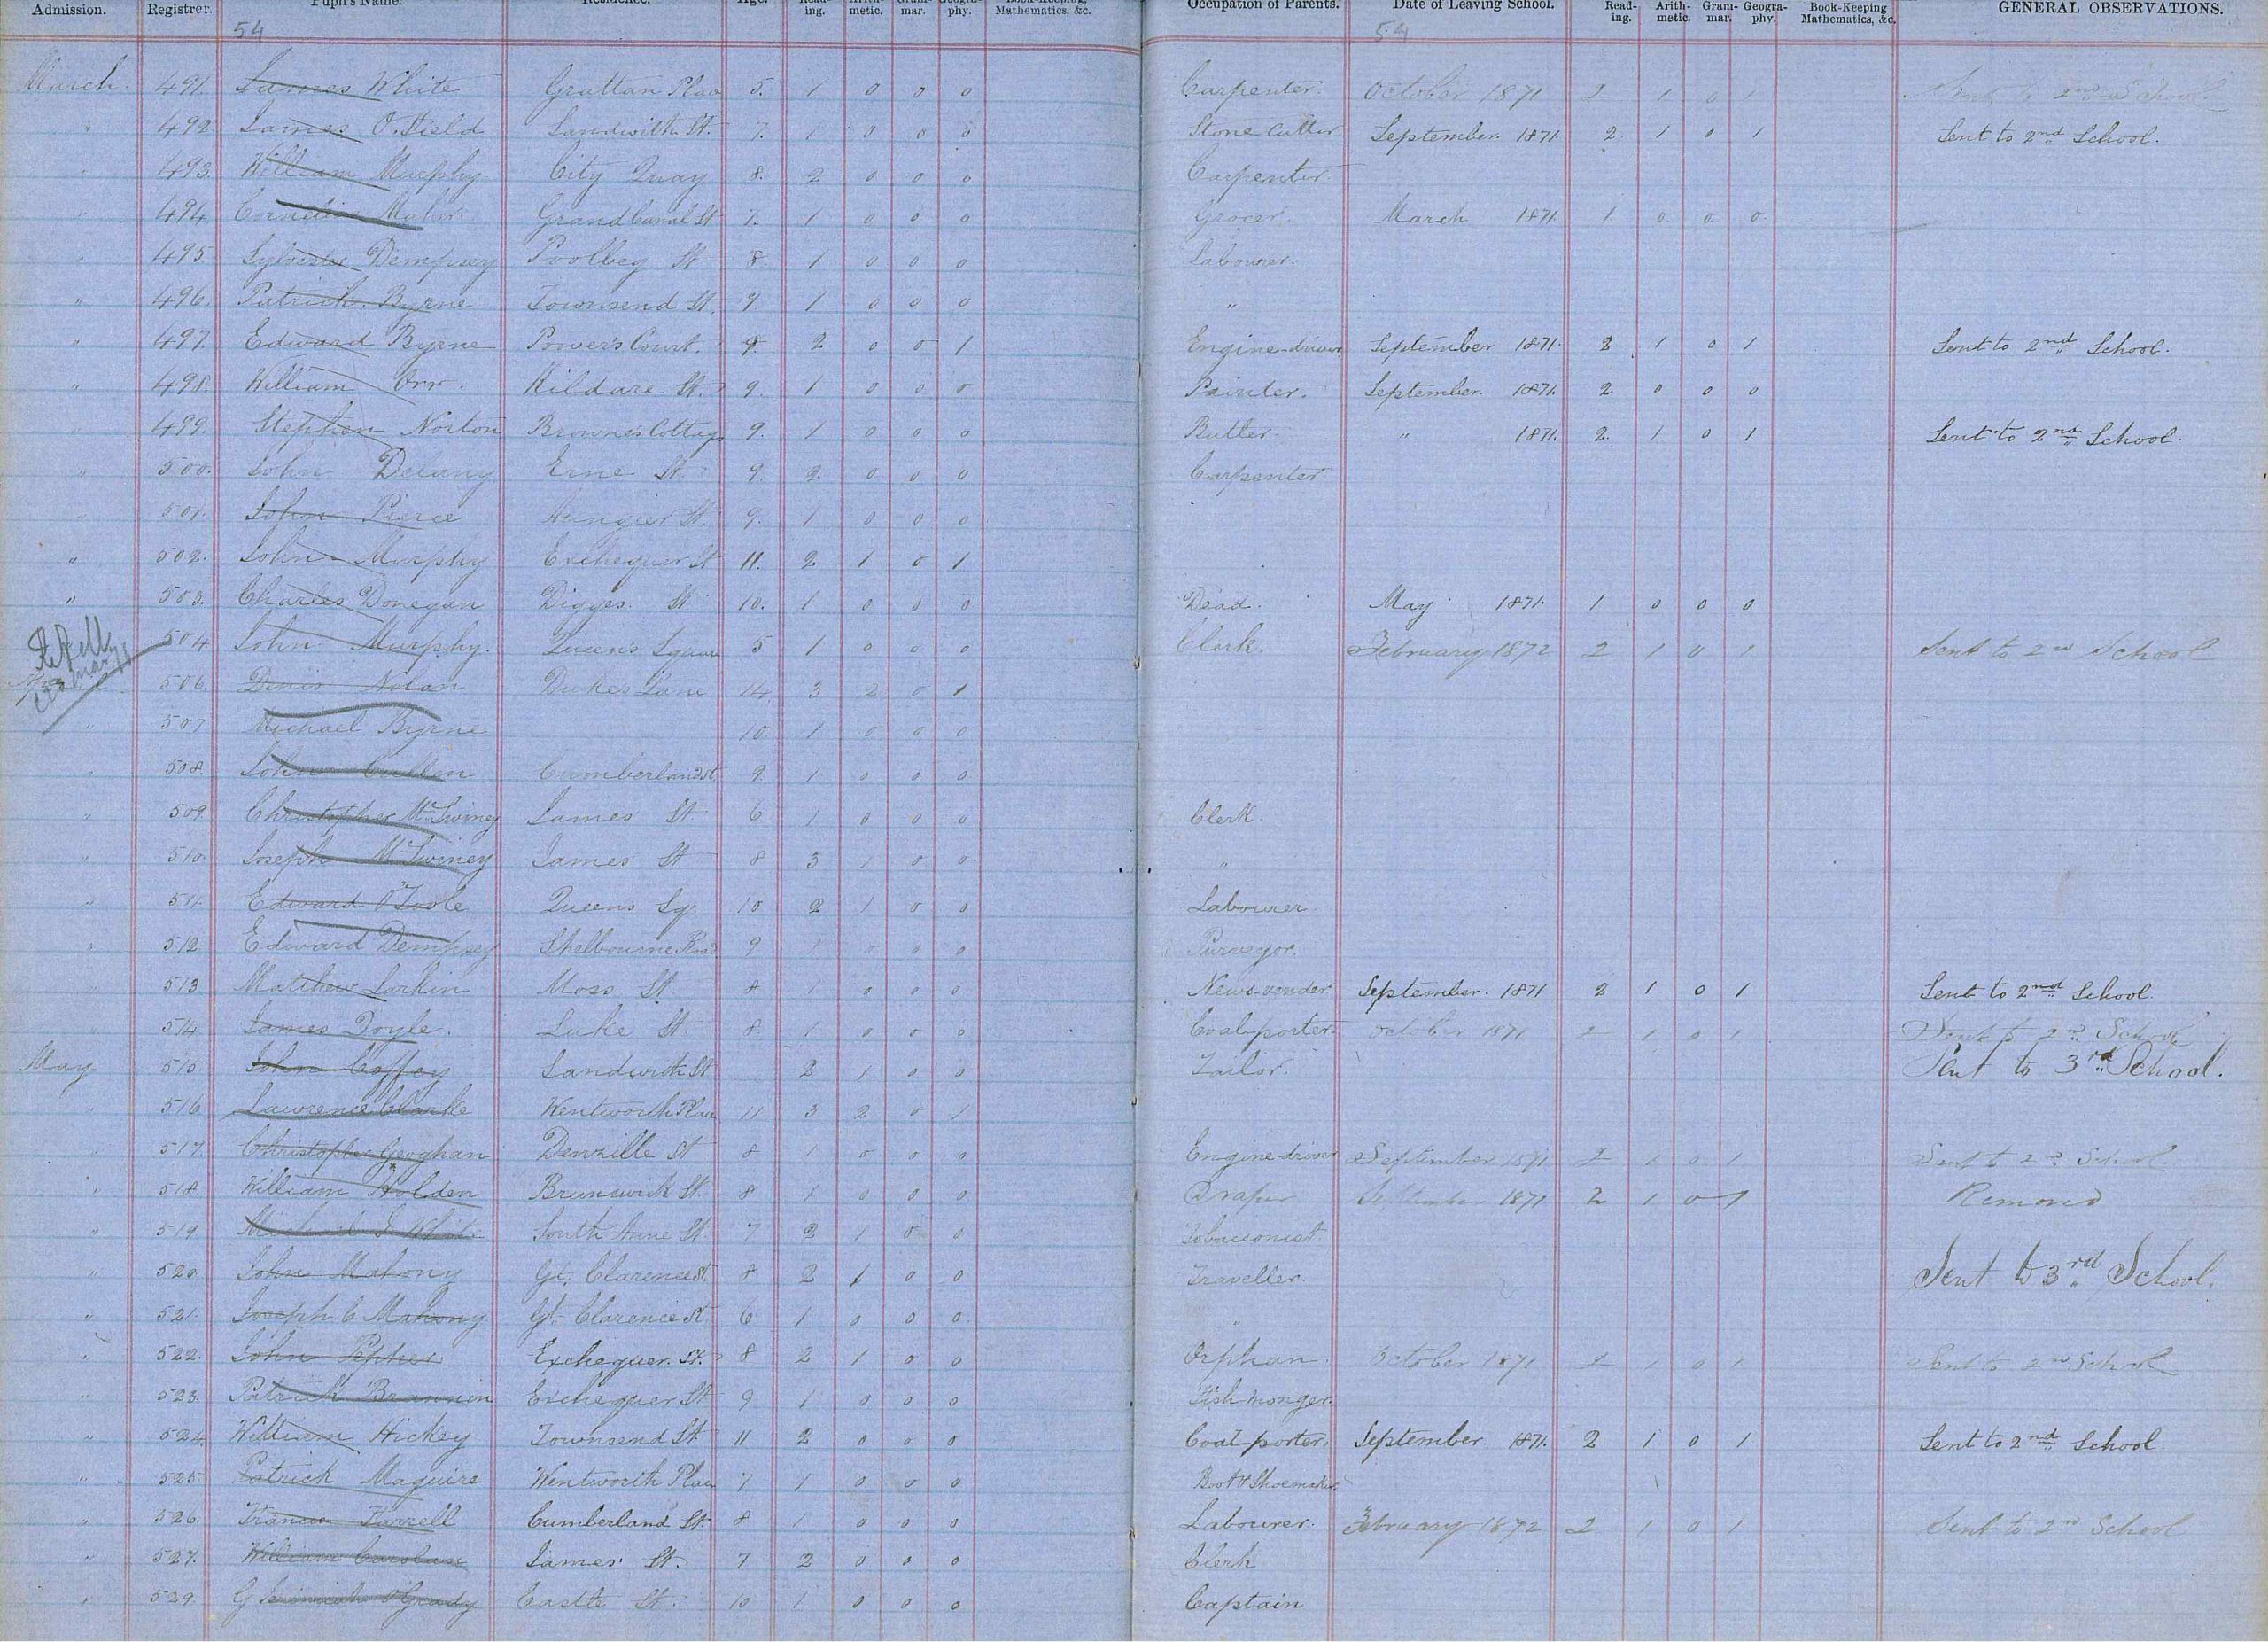 Admission. Registrer. Pupil's Name. Residence. Age. Read-ing. Arith-metic. Gram-mar. Geogra-phy. Book-Keeping, Mathematics, &c. Occupation of Parents. Date of Leaving School. Read-ing. Arith-metic. Gram-mar. Geogra-phy. Book-Keeping Mathematics, &c. GENERAL OBSERVATIONS.
54 54
March. 491. James White Grattan Place 5. 1 0 0 0 Carpenter. October 1871 2 1 0 1 Sent to 2nd School
" 492 James O. Field Sandwith St. 7. 1 0 0 0 Stone Cutter September. 1871. 2 1 0 1 Sent to 2nd School.
" 493. William Murphy City Quay 8. 2 0 0 0 Carpenter.
" 494. Cornelius Maher. Grand Canal St 7. 1 0 0 0 Grocer. March 1871. 1 0 0 0
" 495 Sylvester Dempsey Poolbeg St 8. 1 0 0 0 Labourer.
" 496. Patrick Byrne Townsend St. 9. 1 0 0 0 "
" 497. Edward Byrne Power's Court. 2 0 0 1 Engine-driver September 1871. 2 1 0 1 Sent to 2nd School.
" 498. William Orr. Kildare St. 9. 1 0 0 0 Painter. September. 1871. 2. 0 0 0
" 499. Stephen Norton Browne's Cottage 9. 1 0 0 0 Butler. " 1871. 2. 1 0 1 Sent to 2nd School.
" 500. John Delany Erne St 9. 2 0 0 0 Carpenter
" 501. John Pierce Aungier St. 9. 1 0 0 0
" 502. John Murphy Exchequer St 11. 2 1 0 1
" 503. Charles Donegan Digges. St 10. 1 0 0 0 Dead. May 1871. 1 0 0 0
504 John Murphy. Queen's Square 5 1 0 0 0 Clerk. February 1872 2 1 0 1 Sent to 2nd School
506. Denis Nolan Dukes Lane 14 3 2 0 1
" 507 Michael Byrne 10 1 0 0 0
" 508 John Cullen Cumberland St 9. 1 0 0 0
" 509 Christopher McSwiney James St 6 1 0 0 0 Clerk.
" 510. Joseph McSwiney James St 8 3 1 0 0 "
" 511. Edward O'Toole Queens Sq. 10 2 1 0 0 Labourer.
" 512 Edward Dempsey Shelbourne Road 9 1 0 0 0 Purveyor.
" 513 Matthew Larkin Moss St. 8 1 0 0 0 News-vender September. 1871 2 1 0 1 Sent to 2nd School.
" 514 James Doyle. Luke St 8. 1 0 0 0 Coal-porter October 1871 2 1 0 1 Sent to 2nd School
May 515. John Coffey Sandwith St 2 1 0 0 Tailor. Sent to 3rd School.
" 516 Lawrence Clarke Wentworth Place 11 3 2 0 1
" 517. Christopher Geoghan Denzille St 8 1 0 0 0 Engine-driver September 1871 2 1 0 1 Sent to 2nd School
" 518. William Holden Brunswick St. 8 1 0 0 0 Draper September 1871 2 1 0 1 Removed
" 519 White South Anne St 7 2 1 0 0 Tobacconist.
" 520. John Mahony Gt. Clarence St. 8 2 1 0 0 Traveller. Sent to 3rd School.
" 521. Joseph C Mahony Gt. Clarence St. 6 1 0 0 0 "
" 522. John Pepper Exchequer. St. 8 2 1 0 0 Orphan. October 1871 2 1 0 1 Sent to 2nd School
" 523. Patrick Brannin Exchequer St 9 1 0 0 0 Fishmonger.
" 524. William Hickey Townsend St 11 2 0 0 0 Coal-porter. September. 1871. 2 1 0 1 Sent to 2nd School
" 525. Patrick Maguire Wentworth Place 7 1 0 0 0 Boot & Shoemaker.
" 526. Francis Farrell Cumberland St. 8 1 0 0 0 Labourer. February 1872 2 1 0 1 Sent to 2nd School
" 527. William James' St. 7 2 0 0 0 Clerk
" 529. O'Grady Castle St. 10 1 0 0 0 Captain